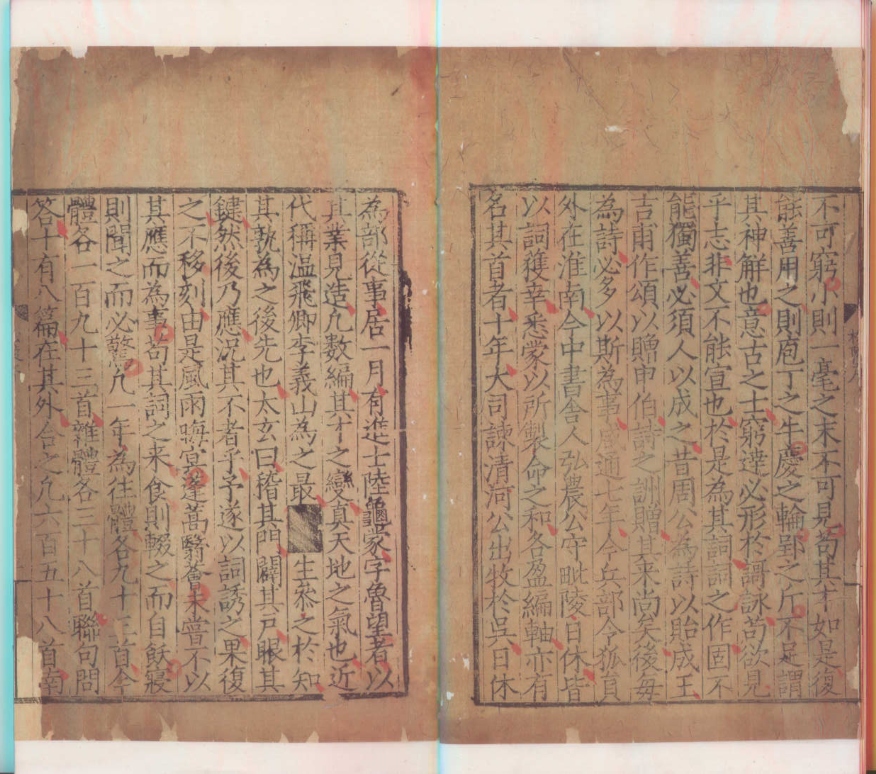 不可窮小則一毫之末不可見苟其才如是復
䏻善用之則庖丁之牛慶之輪郢之斤不足謂
其神解也意古之士窮達必形於謌詠苟欲見
乎志非文不䏻宣也於是為其詞詞之作固不
䏻獨善必須人以成之昔周公為詩以貽成王
吉甫作頌以贈申伯詩之詶贈其来尚矣後每
為詩必多以斯為事咸通七年今兵部令狐員
外在淮南今中書舍人弘農公守毗陵日休皆
以詞獲幸悉蒙以所製命之和各盈編軸亦有
名其首者十年大司諫清河公出牧於吳日休
為部從事居一月有進士陸龜蒙字魯望者以
其業見造凢數編其才之變真天地之氣也近
代稱温飛卿李義山為之最 生叅之於知
其孰為之後先也太玄曰稽其門闢其戸眼其
鍵然後乃應况其不者乎予遂以詞誘之果復
之不移刻由是風雨晦冥蓬蒿翳薈未嘗不以
其應而為事苟其詞之来食則輟之而自飫寢
則聞之而必驚凢一年為往體各九十三首今
體各一百九十三首雜體各三十八首聯句問
荅十有八篇在其外合之凢六百五十八首南